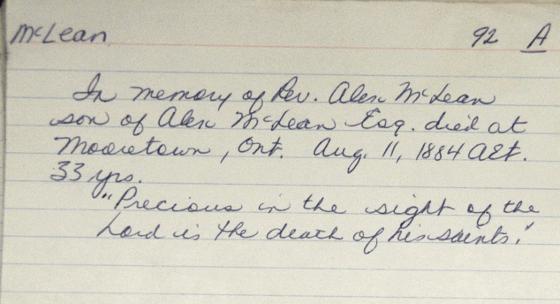 McLean 92 A
In memory of Rev. Alex McLean
son of Alex McLean Esq. died at
Mooretown, Ont. Aug. 11, 1884 Aet.
33 yrs.
"Precious in the sight of the
Lord is the death of his saints."